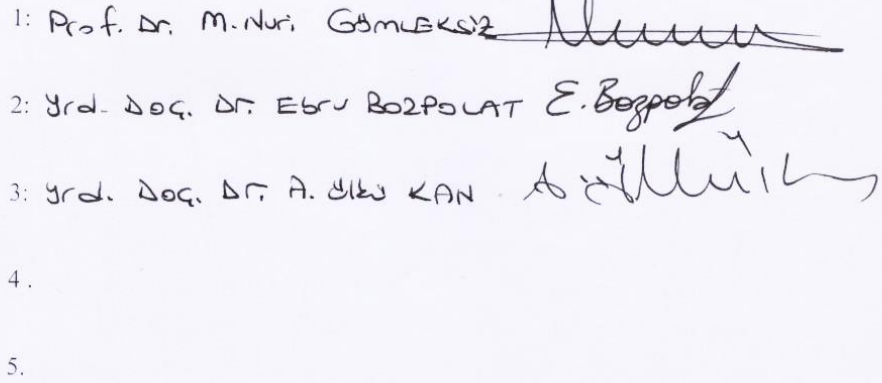 1: Prof. Dr. M. Nuri GÖMLEKSİZ
2: Yrd. Doç. Dr. Ebru BOZPOLAT E. Bozpolat
3: Yrd. Doç. Dr. A. Ülkü KAN
4.
5.